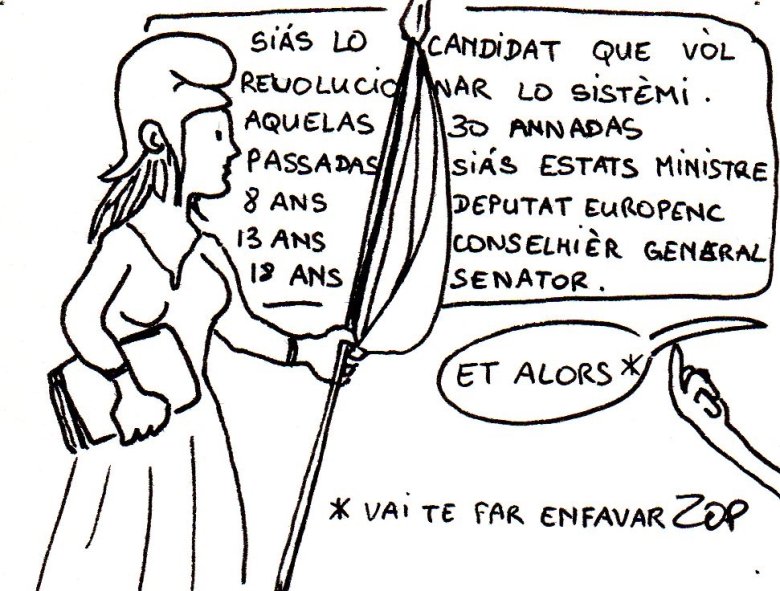 SIÁS LO CANDIDAT QUE VÒL
REVOLUCIONAR LO SISTÈMI.
AQUELAS 30 ANNADAS
PASSADAS SIÁS ESTATS MINISTRE
8 ANS DEPUTAT EUROPENC
13 ANS CONSELHIÈR GENERAL
18 ANS SENATOR.
ET ALORS*
* VAI TE FAR ENFAVAR ZOP